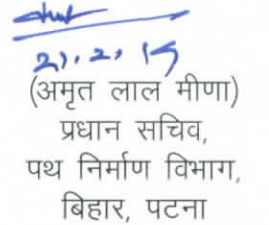 21.2.19
(अमृत लाल मीणा)
प्रधान सचिव,
पथ निर्माण विभाग,
बिहार, पटना